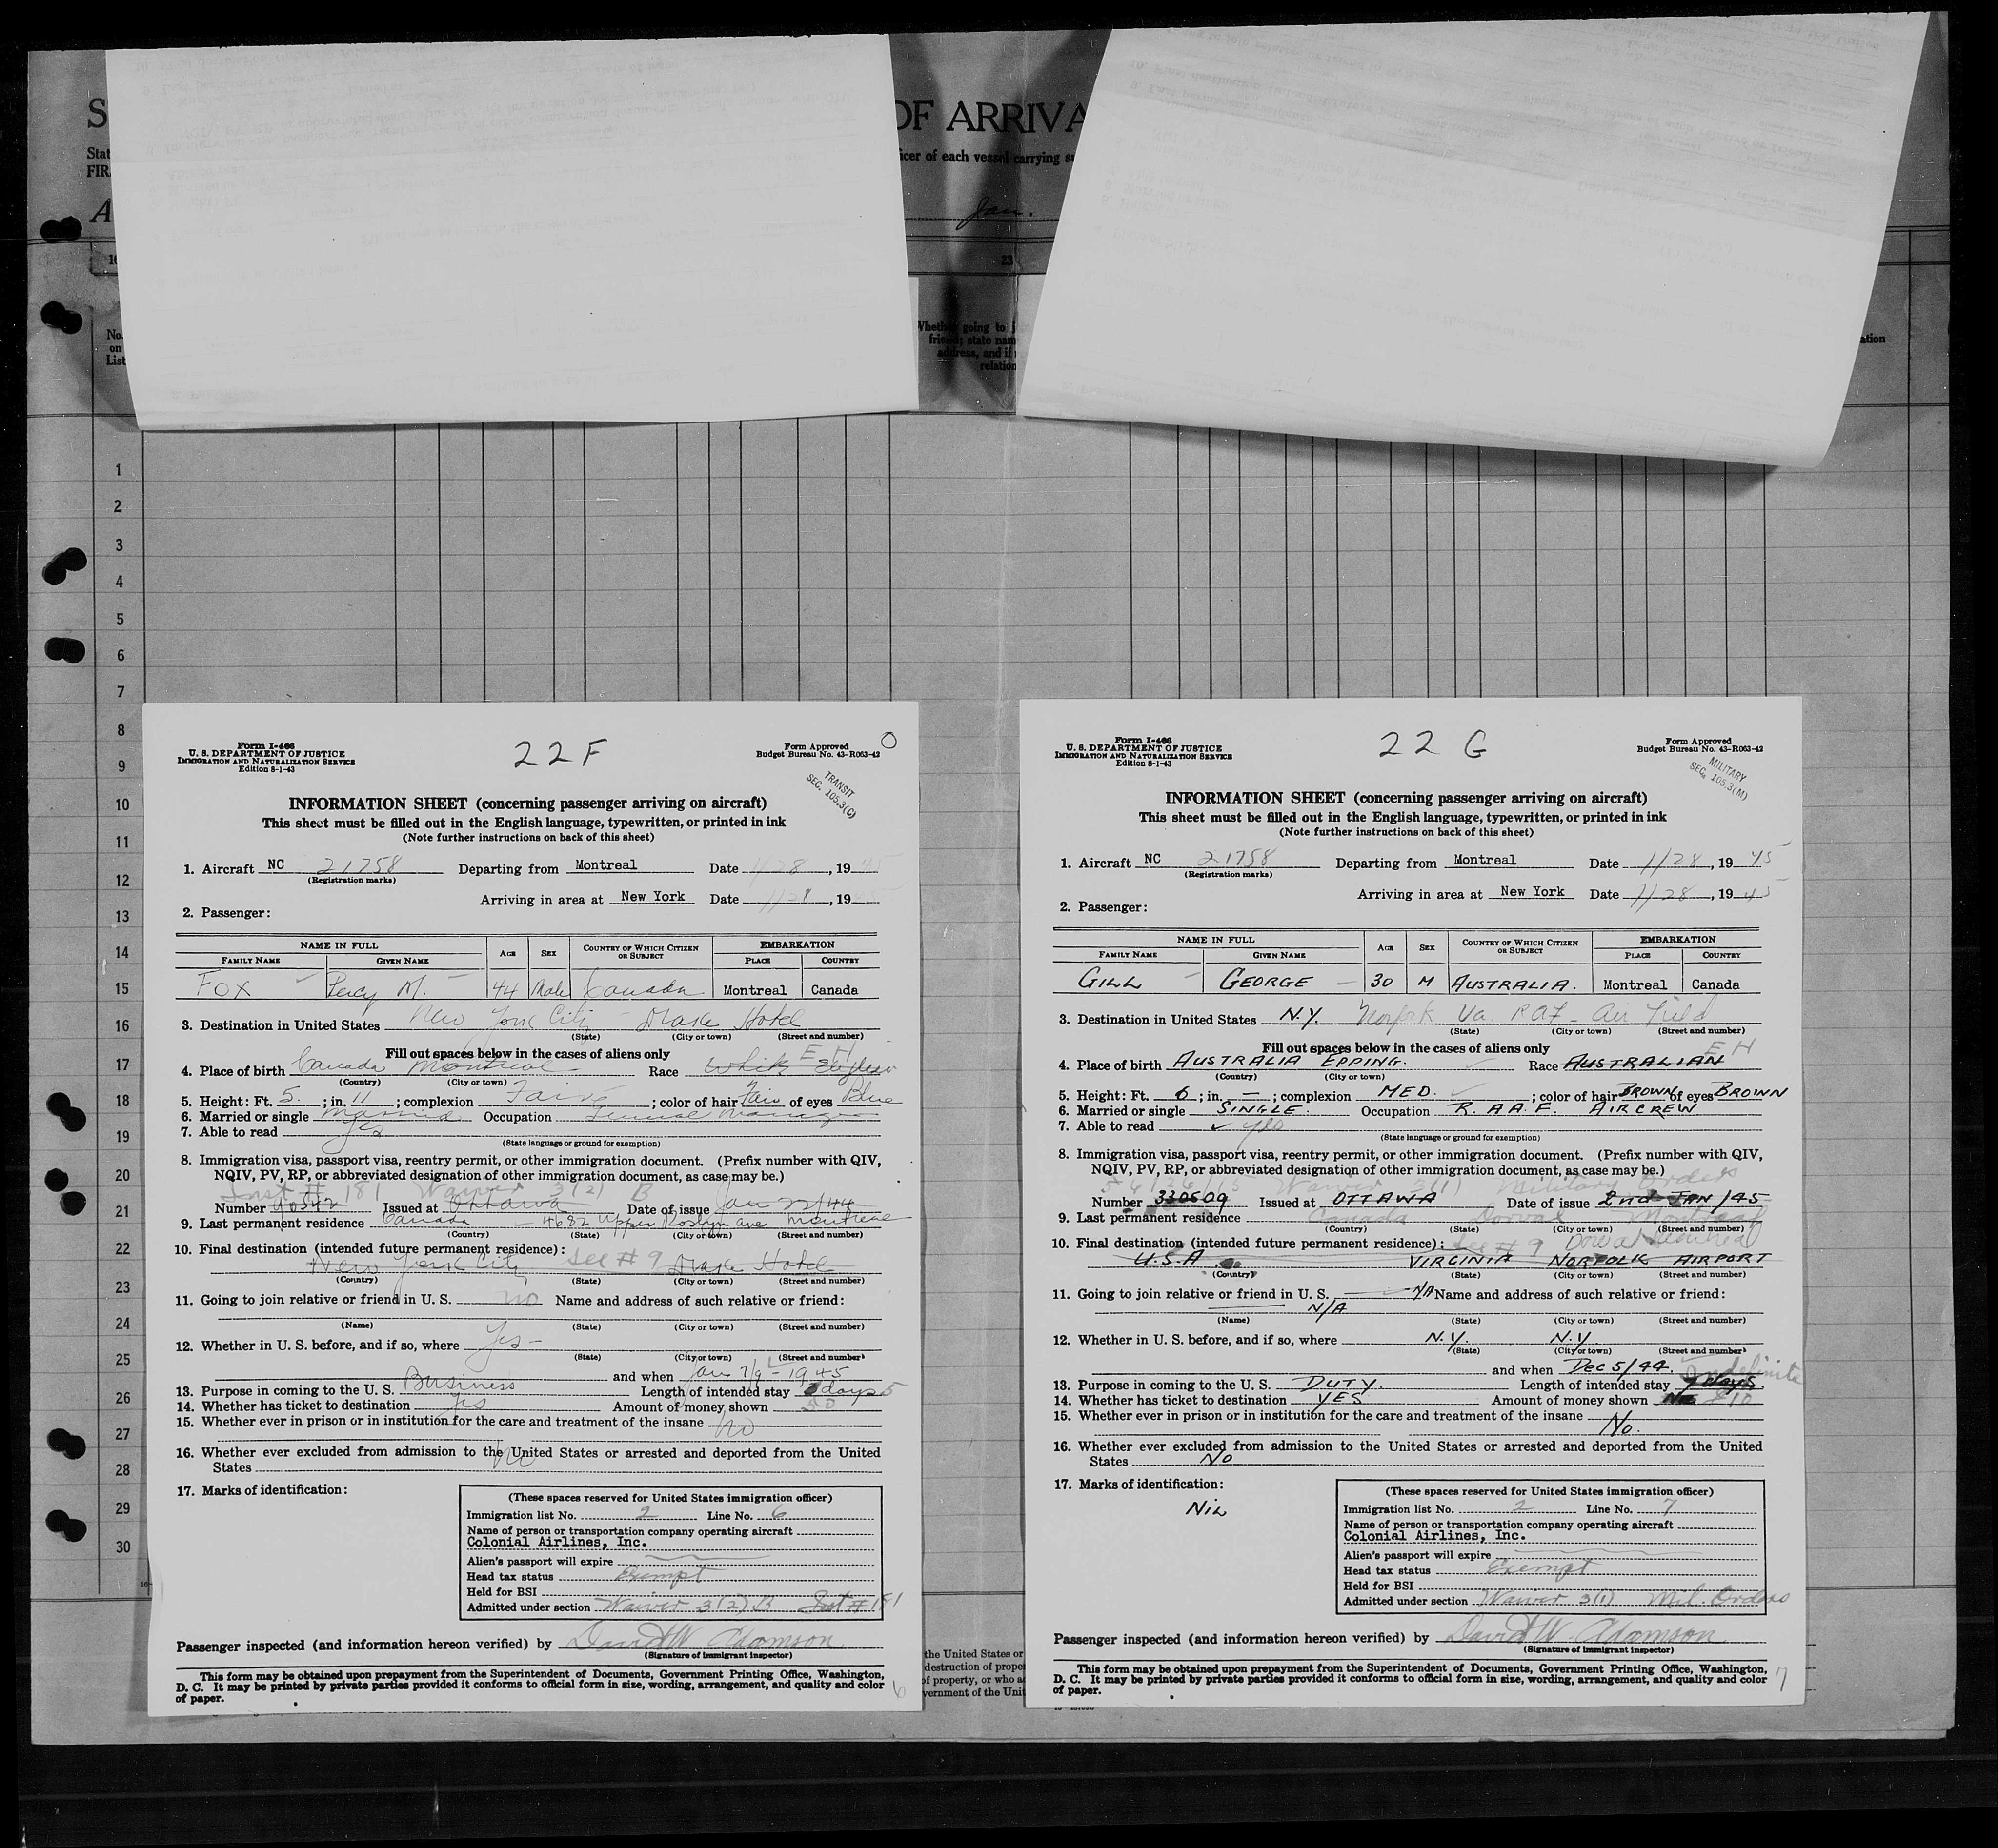 S
OF ARRIVA
Stat
icer of each vessel carrying su
FIR
A
Jan.
16
23
No.
on
List
Whether going to j
friend; state nam
address, and if
relation
ation
1
2
3
4
5
6
7
8
9
10
11
12
13
14
15
16
17
18
19
20
21
22
23
24
25
26
27
28
29
30
22F
Form I-466
U. S. DEPARTMENT OF JUSTICE
IMMIGRATION AND NATURALIZATION SERVICE
Edition 8-1-43
Form Approved
Budget Bureau No. 43-R063-42
TRANSIT
SEC. 105.3(C)
INFORMATION SHEET (concerning passenger arriving on aircraft)
This sheet must be filled out in the English language, typewritten, or printed in ink
(Note further instructions on back of this sheet)
1. Aircraft NC 21758 Departing from Montreal Date 1/28, 1945
(Registration marks)
Arriving in area at New York Date 1/28, 1945
2. Passenger:
NAME IN FULL AGE SEX COUNTRY OF WHICH CITIZEN OR SUBJECT EMBARKATION
FAMILY NAME GIVEN NAME PLACE COUNTRY
Fox Percy M. 44 Male Canada Montreal Canada
3. Destination in United States New York City - Drake Hotel
(State) (City or town) (Street and number)
Fill out spaces below in the cases of aliens only
4. Place of birth Canada Montreal Race White English
(Country) (City or town)
5. Height: Ft. 5; in. 11; complexion Fair; color of hair Fair of eyes Blue
6. Married or single Married Occupation General Manager
7. Able to read Yes
(State language or ground for exemption)
8. Immigration visa, passport visa, reentry permit, or other immigration document. (Prefix number with QIV,
NQIV, PV, RP, or abbreviated designation of other immigration document, as case may be.)
Inst # 181 Waiver 3(2) B
Number 40542 Issued at Ottawa Date of issue Jan 22/44
9. Last permanent residence Canada - 4682 Upper Roslyn ave Montreal
(Country) (State) (City or town) (Street and number)
10. Final destination (intended future permanent residence):
New York City See # 9 Drake Hotel
(Country) (State) (City or town) (Street and number)
11. Going to join relative or friend in U. S. no Name and address of such relative or friend:
(Name) (State) (City or town) (Street and number)
12. Whether in U. S. before, and if so, where Yes -
(State) (City or town) (Street and number)
and when Jan 7/9 - 1945
13. Purpose in coming to the U. S. Business Length of intended stay days
14. Whether has ticket to destination Yes Amount of money shown
15. Whether ever in prison or in institution for the care and treatment of the insane no
16. Whether ever excluded from admission to the United States or arrested and deported from the United
States no
17. Marks of identification:
(These spaces reserved for United States immigration officer)
Immigration list No. 2 Line No. 6
Name of person or transportation company operating aircraft
Colonial Airlines, Inc.
Alien's passport will expire
Head tax status Exempt
Held for BSI
Admitted under section Waiver 3(2) B Inst # 181
Passenger inspected (and information hereon verified) by David W. Adamson
(Signature of immigrant inspector)
This form may be obtained upon prepayment from the Superintendent of Documents, Government Printing Office, Washington,
D. C. It may be printed by private parties provided it conforms to official form in size, wording, arrangement, and quality and color
of paper.
6
the United States or
destruction of prope
of property, or who a
vernment of the Unit
22 G
Form I-466
U. S. DEPARTMENT OF JUSTICE
IMMIGRATION AND NATURALIZATION SERVICE
Edition 8-1-43
Form Approved
Budget Bureau No. 43-R063-42
MILITARY
SEC. 105.3(M)
INFORMATION SHEET (concerning passenger arriving on aircraft)
This sheet must be filled out in the English language, typewritten, or printed in ink
(Note further instructions on back of this sheet)
1. Aircraft NC 21758 Departing from Montreal Date 1/28, 1945
(Registration marks)
Arriving in area at New York Date 1/28, 1945
2. Passenger:
NAME IN FULL AGE SEX COUNTRY OF WHICH CITIZEN OR SUBJECT EMBARKATION
FAMILY NAME GIVEN NAME PLACE COUNTRY
GILL GEORGE 30 M AUSTRALIA. Montreal Canada
3. Destination in United States N.Y. Norfolk Va. RAF - Air Field
(State) (City or town) (Street and number)
Fill out spaces below in the cases of aliens only
EH
4. Place of birth AUSTRALIA EPPING. Race AUSTRALIAN
(Country) (City or town)
5. Height: Ft. 6; in. —; complexion MED.; color of hair BROWN of eyes BROWN
6. Married or single SINGLE. Occupation R.A.A.F. AIRCREW
7. Able to read yes
(State language or ground for exemption)
8. Immigration visa, passport visa, reentry permit, or other immigration document. (Prefix number with QIV,
NQIV, PV, RP, or abbreviated designation of other immigration document, as case may be.)
Waiver 3(1) Military Orders
Number 330609 Issued at OTTAWA Date of issue 2nd JAN/45
9. Last permanent residence Canada Dorval Montreal
(Country) (State) (City or town) (Street and number)
10. Final destination (intended future permanent residence): See # 9 Dorval Montreal
U.S.A. VIRGINIA NORFOLK AIRPORT
(Country) (State) (City or town) (Street and number)
11. Going to join relative or friend in U. S. N/A Name and address of such relative or friend:
N/A
(Name) (State) (City or town) (Street and number)
12. Whether in U. S. before, and if so, where N.Y. N.Y
(State) (City or town) (Street and number)
and when Dec 5/44. Indefinite
13. Purpose in coming to the U. S. DUTY. Length of intended stay 7 days.
14. Whether has ticket to destination YES Amount of money shown £10
15. Whether ever in prison or in institution for the care and treatment of the insane No.
16. Whether ever excluded from admission to the United States or arrested and deported from the United
States No
17. Marks of identification:
NIL
(These spaces reserved for United States immigration officer)
Immigration list No. 2 Line No. 7
Name of person or transportation company operating aircraft
Colonial Airlines, Inc.
Alien's passport will expire
Head tax status Exempt
Held for BSI
Admitted under section Waiver 3(1) Mil. Orders
Passenger inspected (and information hereon verified) by David W. Adamson
(Signature of immigrant inspector)
This form may be obtained upon prepayment from the Superintendent of Documents, Government Printing Office, Washington,
D. C. It may be printed by private parties provided it conforms to official form in size, wording, arrangement, and quality and color
of paper.
7